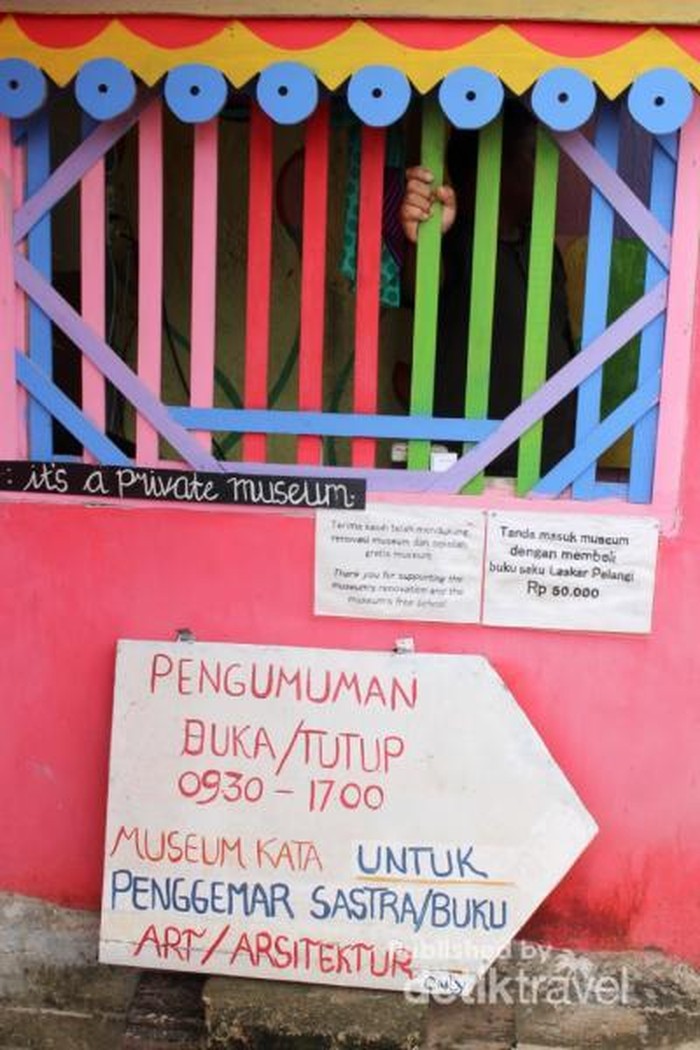 : it's a private museum.
Terima kasih telah mendukung
renovasi museum dan sekolah
gratis museum
Thank you for supporting the
museum's renovation and the
museum's free school
Tanda masuk museum
dengan membeli
buku saku Laskar Pelangi
Rp 50.000
PENGUMUMAN
BUKA/TUTUP
0930 - 1700
MUSEUM KATA UNTUK
PENGGEMAR SASTRA/BUKU
ART/ARSITEKTUR
Only
Published by
detiktravel